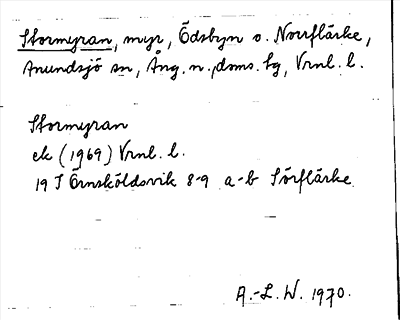 Stormyran, myr, Ödsbyn o. Norrflärke,
Anundsjö sn, Ång. n. doms. tg, Vrnl. l.
Stormyran
ek (1969) Vrnl. l.
19 J Örnsköldsvik 8-9 a-b Sörflärke
A.-L. W. 1970.